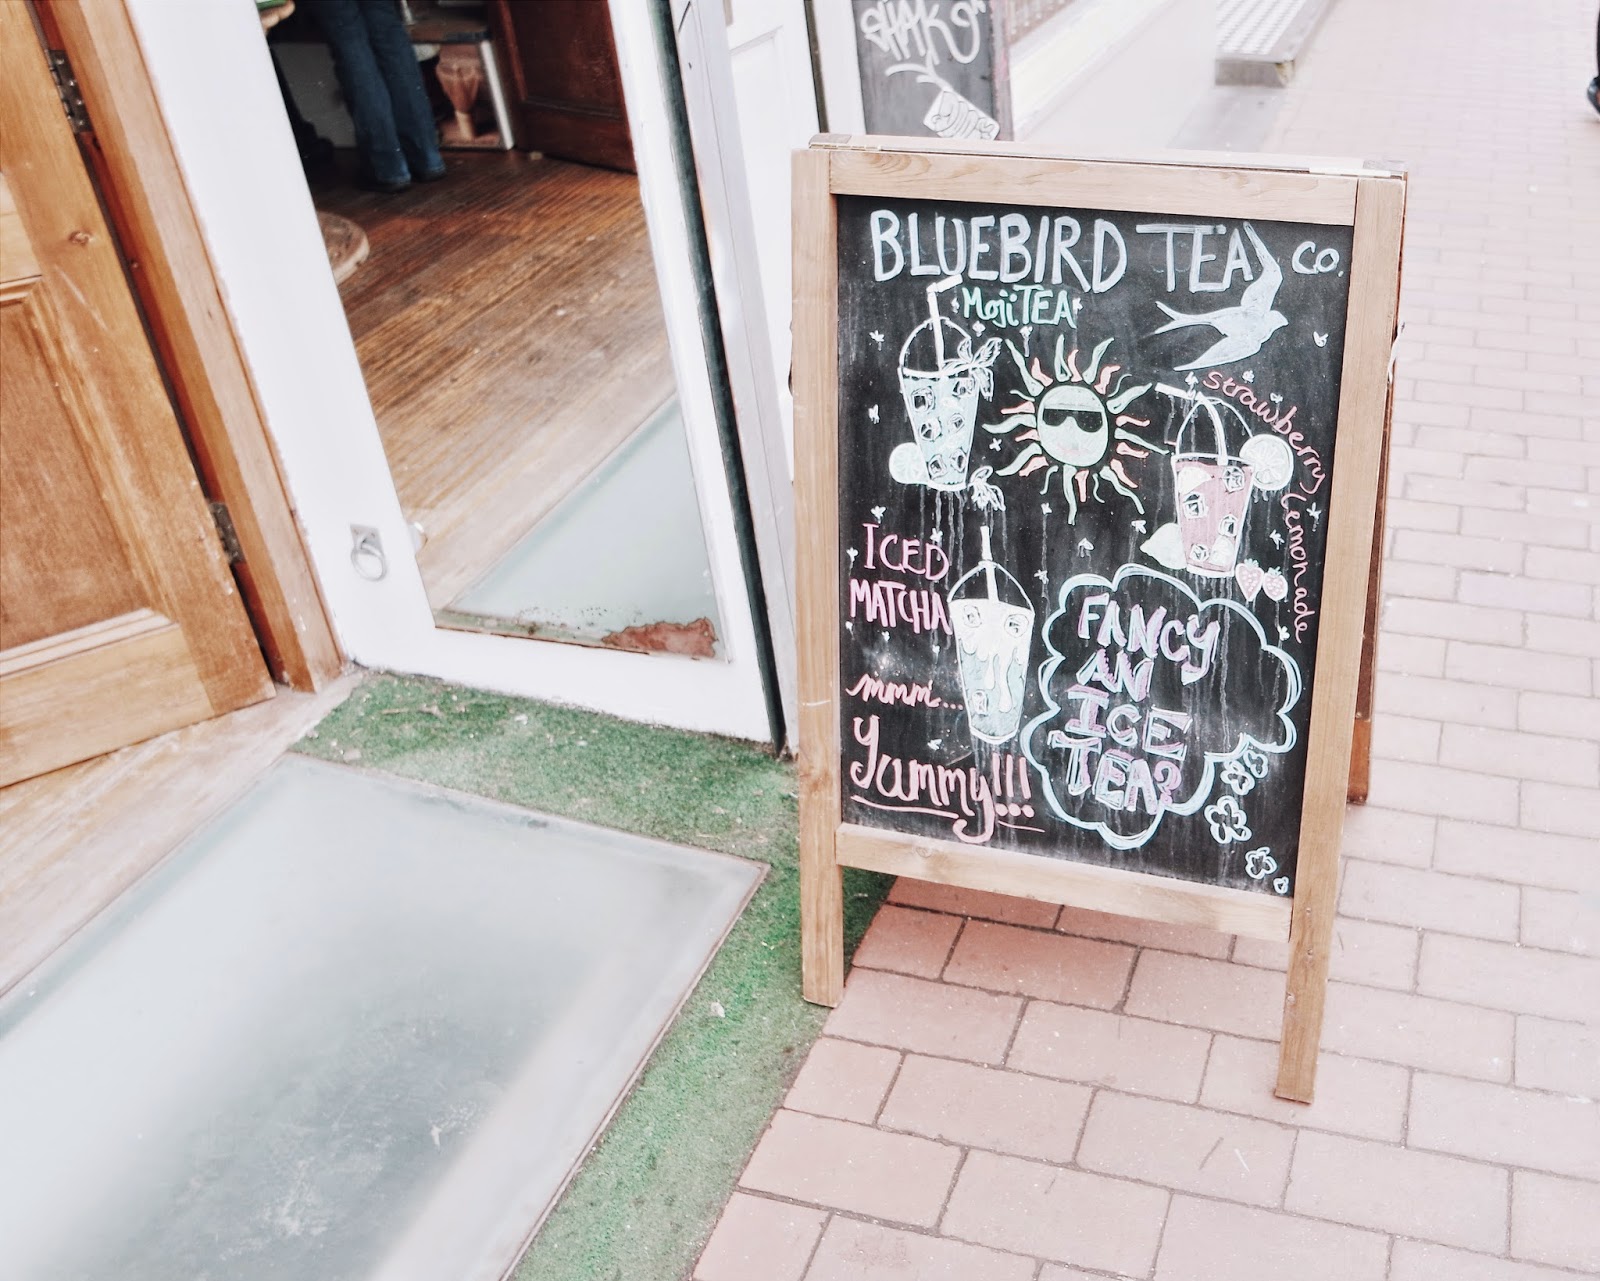 BLUEBIRD TEA CO.
MojiTEA
strawberry lemonade
ICED
MATCHA
mmm...
Yummy!!!
FANCY
AN
ICE
TEA?